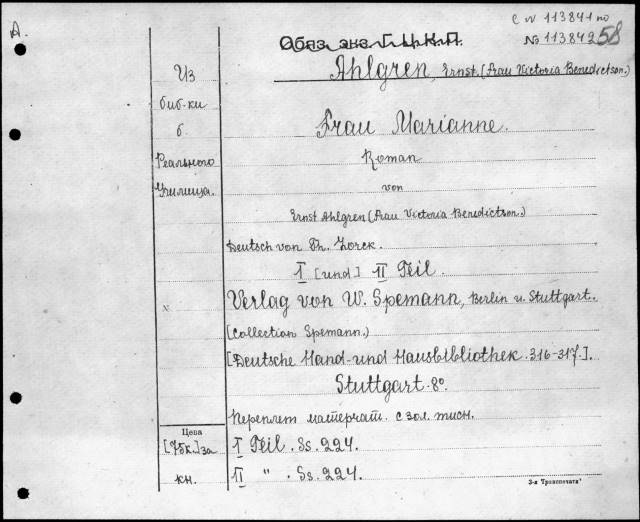 А.
с № 113841 по
№ 11384258
Обяз. экз. Г.Ц.К.П.
Ahlgren, Ernst. (Frau Victoria Benedictson.)
Из
биб-ки
б.
Реального
Училища.
Frau Marianne.
Roman
von
Ernst Ahlgren (Frau Victoria Benedictson.)
Deutsch von Th. Lorck.
I [und] II Teil.
x
Verlag von W. Spemann, Berlin u. Stuttgart.
(Collection Spemann.)
[Deutsche Hand- und Hausbibliothek. 316-317.].
Stuttgart. 8o.
Переплет матерчат. с зол. тисн.
Цена
[75к.] за
кн.
I Teil. Ss. 224.
II " . Ss. 224.
3-я Транспечать"